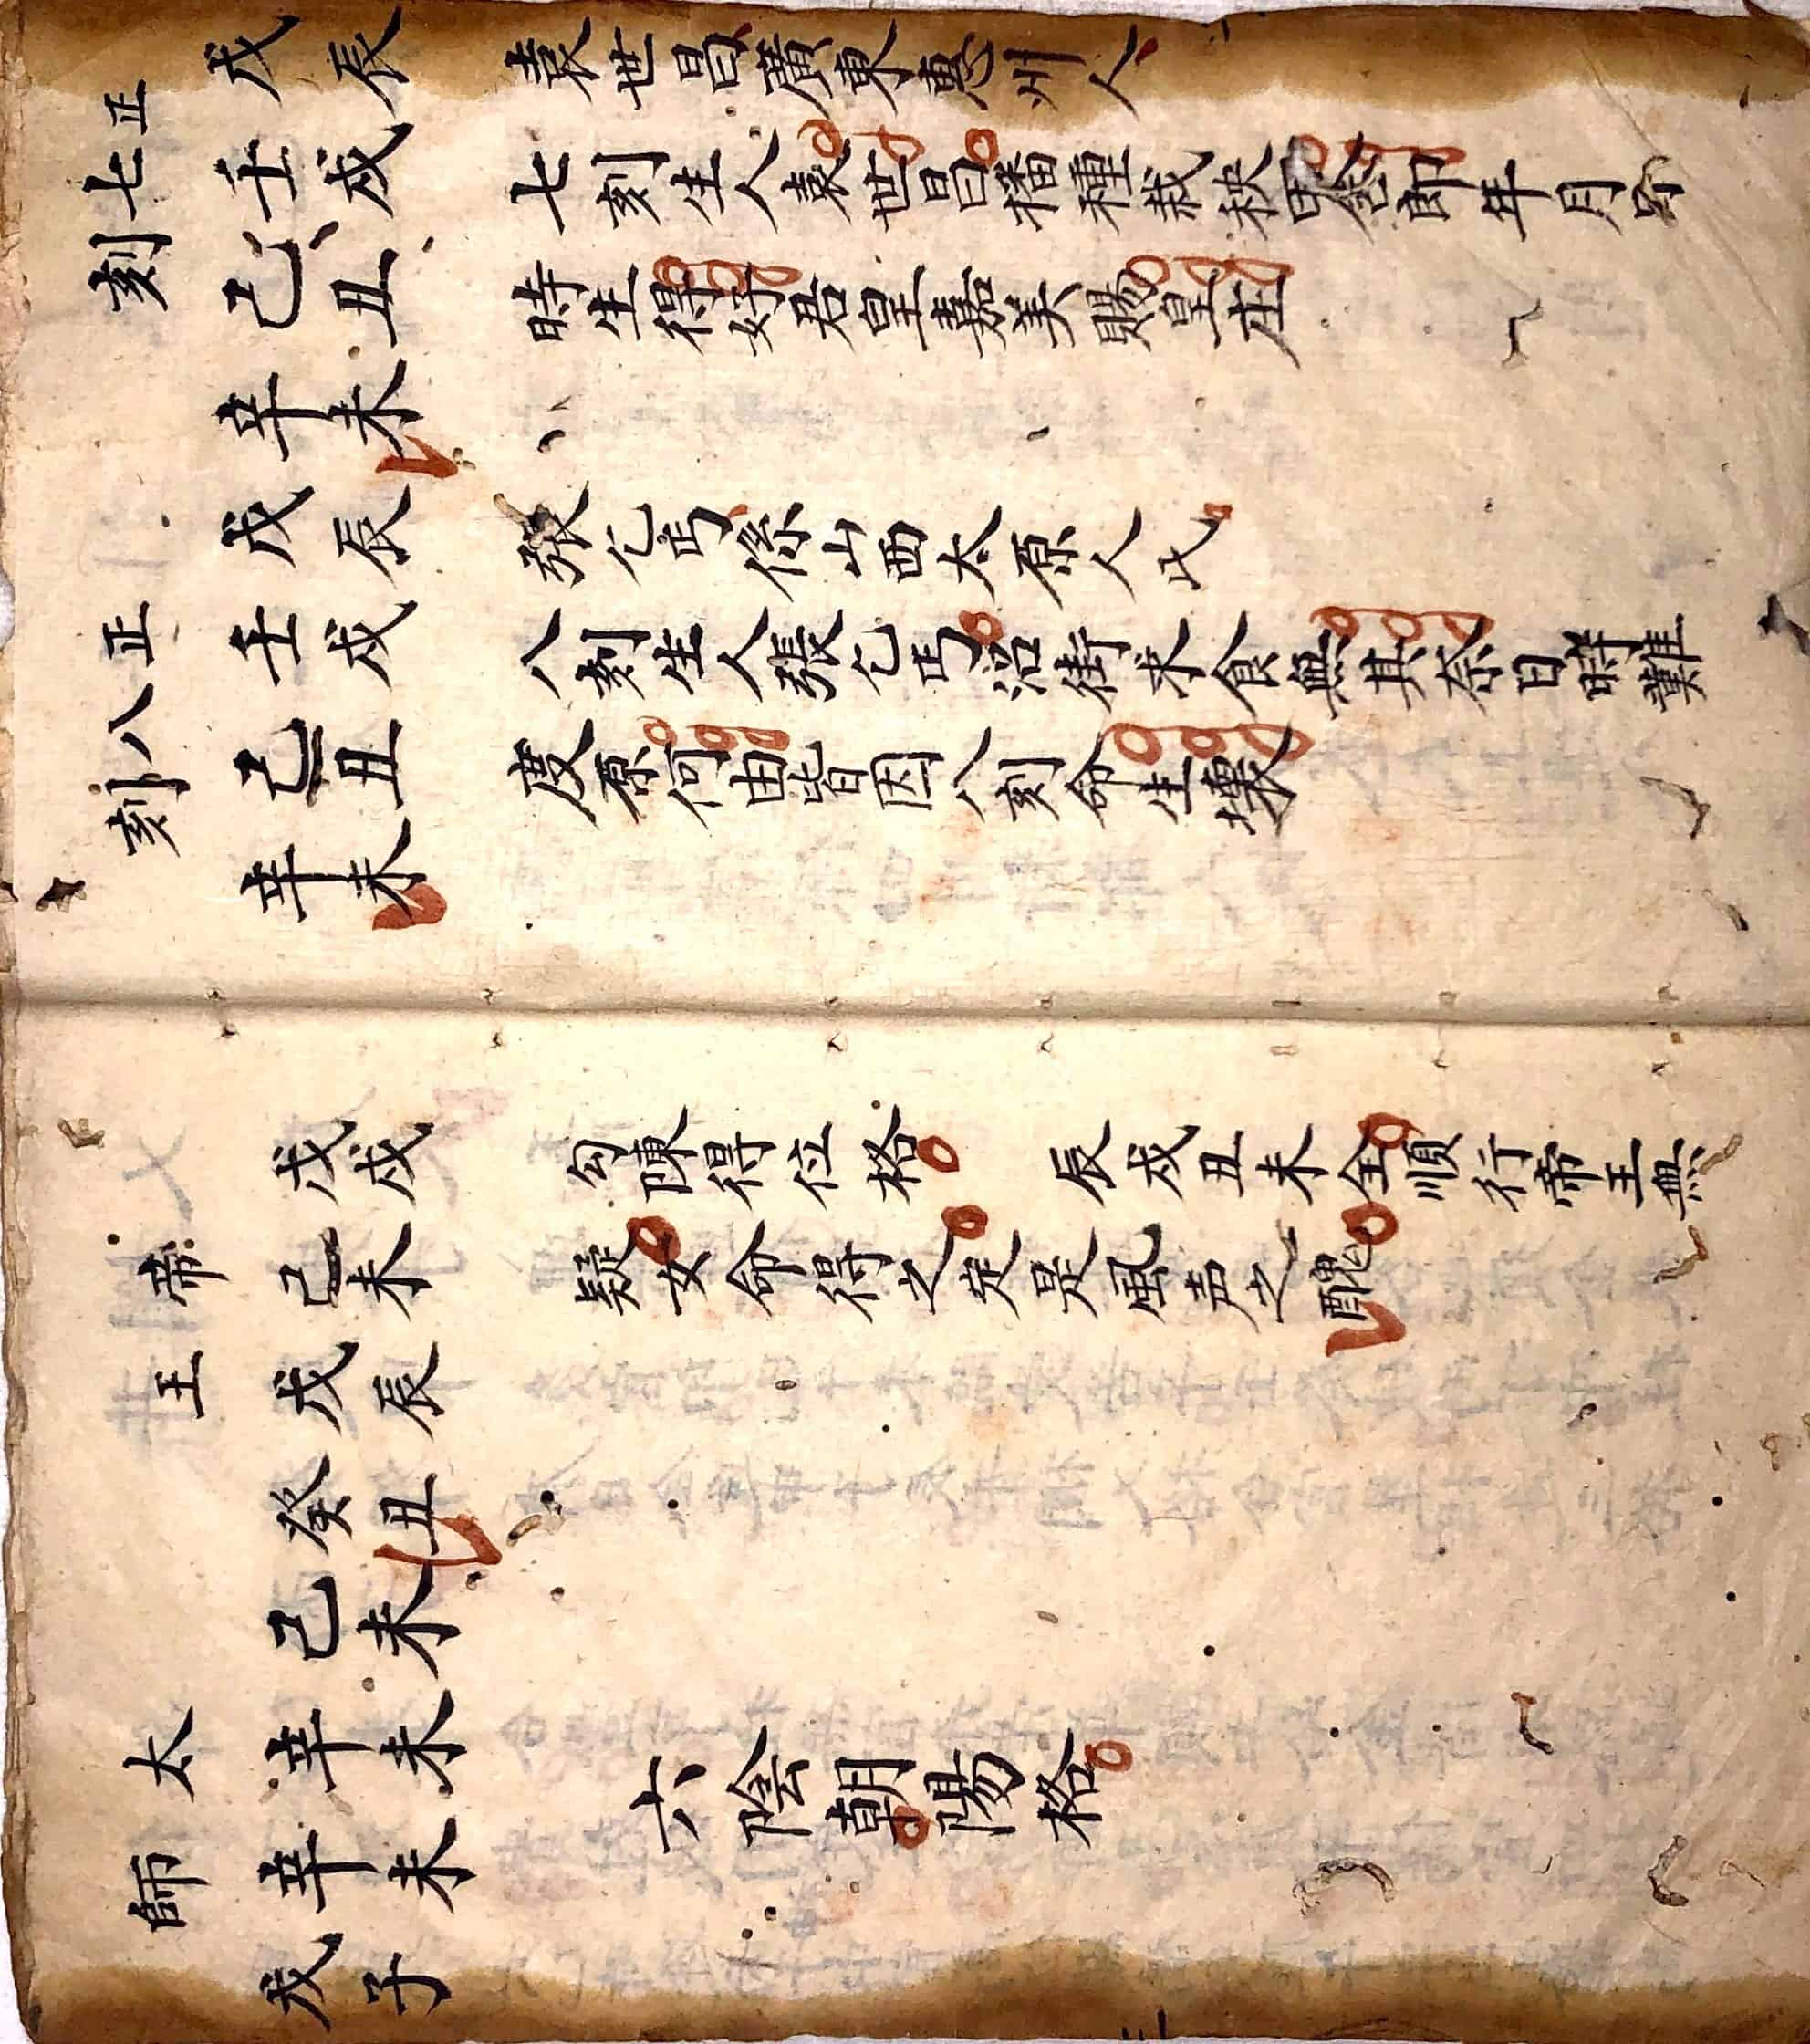 正七刻
戊辰 袁世昌廣東惠州人
壬戌 七刻生人袁世昌播種栽秧舍郎年月
己丑 時生得好君皇嘉美賜皇庄
辛未
正八刻
戊辰 張乞丐係山西太原人氏
壬戌 八刻生人張乞丐沿街求食無其奈日時難
己丑 度原何由皆因八刻命生壞
辛未
帝王
戊戌 勾陳得位格 辰戌丑未全順行帝王無
己未 疑女命得之定是風声之醜
戊辰
癸丑
太師
己未
辛未 六陰朝陽格
辛未
戊子